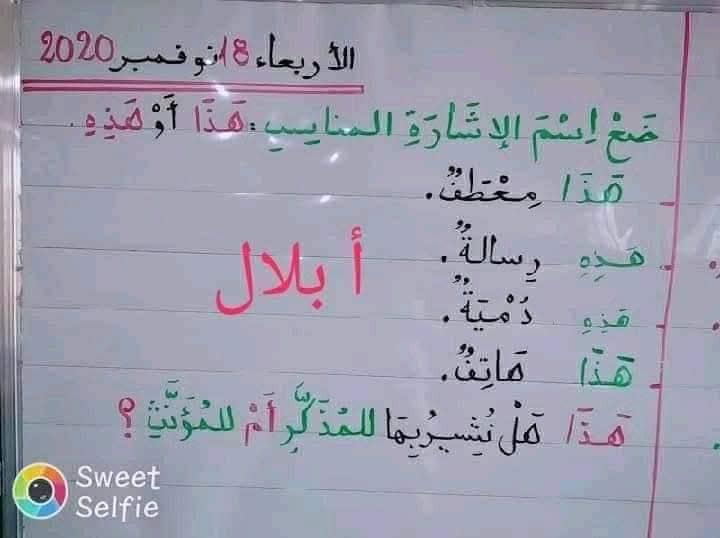 الأربعاء 18 نوفمبر 2020
ضَعْ اِسْمَ الإِشَارَةِ المناسب: هَذَا أَوْ هَذِهِ.
- هَذَا مِعْطَفٌ.
- هَذِهِ رِسالةٌ.
- هَذِهِ دُمْيَةٌ.
- هَذَا هَاتِفٌ.
هَذَا هَلْ نُشِيرُ بِهَا للمُذَكَّرِ أَمْ للمُؤَنَّثِ؟
أ بلال
Sweet
Selfie